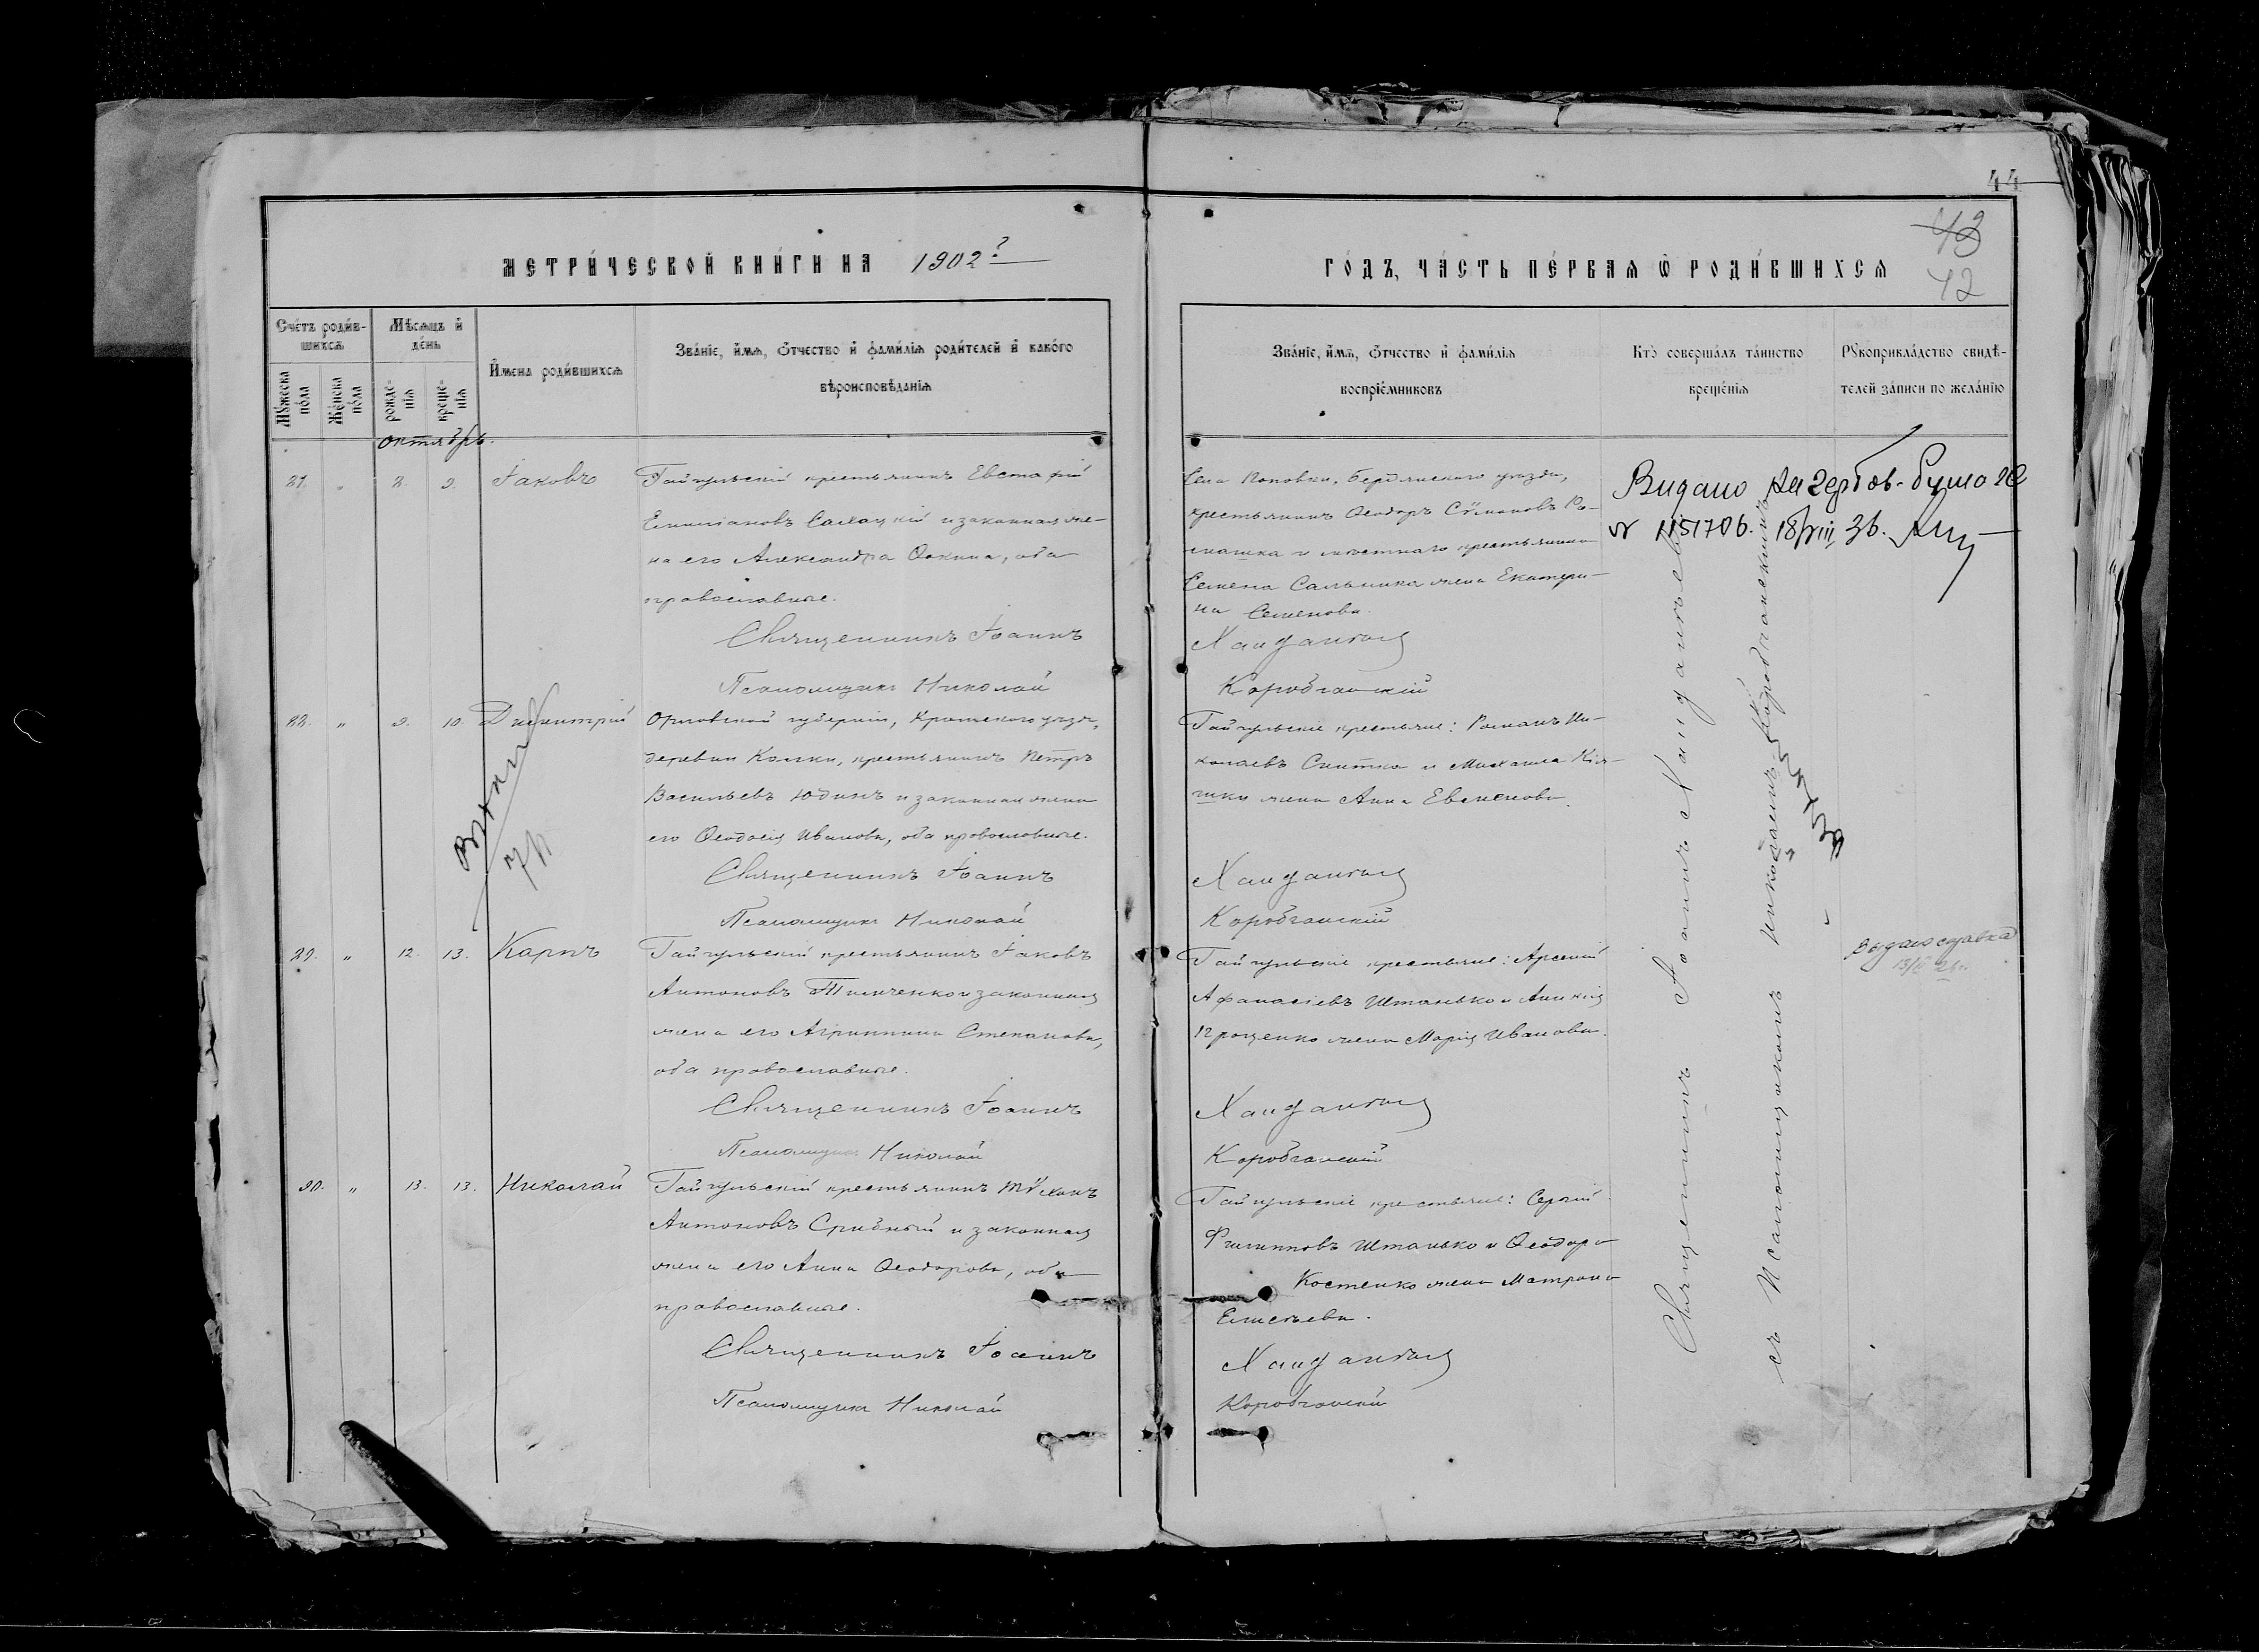 44
43
42
МЕТРИ́ЧЕСКОЙ КНИ́ГИ НА 1902 г
ГО́ДЪ, ЧА́СТЬ ПЕ́РВАѦ Ѡ РОДИ́ВШИХСѦ
Сче́тъ роди́в-
шихсѧ
Мѣ́сѧцъ и҆
де́нь
Мꙋ́жеска
по́ла
Же́нска
по́ла
рожде́-
нїѧ
креще́-
нїѧ
И҆мена роди́вшихсѧ
Зва́нїе, и҆́мѧ, ѻ҆́тчество и҆ фами́лїѧ роди́телей и҆ како́го
вѣроисповѣ́данїѧ
Зва́нїе, и҆́мѧ, ѻ҆́тчество и҆ фами́лїѧ
воспрїе́мниковъ
Кто̀ соверша́лъ та́инство
креще́нїѧ
Рꙋкоприкла́дство свидѣ́-
телей за́писи по жела́нїю
октябрь.
27. " 2. 9. Іаковъ
Гайчульскій крестьянинъ Евстафій
Емиліановъ и законная же-
на его Александра Ѳокина, оба
православные.
Священникъ Іоаннъ
Псаломщикъ Николай
Села Поповки, Бердянскаго уѣзда,
крестьянинъ Ѳеодоръ Сѵмоновъ Ро-
машка и мѣстнаго крестьянина
Семена Сальника жена Екатери-
на Семенова.
Хандажевъ
Коробчанскій
Видано на гербов. бума
№ 1151706. 18/VIII 36.
28. " 9. 10. Димитрій
Орловской губерніи, Кромскаго уѣзда,
деревни Колки, крестьянинъ Петръ
Васильевъ Юдинъ и законная жена
его Ѳеодосія Иванова, оба православные.
Священникъ Іоаннъ
Псаломщикъ Николай
Гайчульскіе крестьяне: Романъ Ни-
колаевъ Снитко и Михаила Кія-
шки жена Анна Евсеенова.
Коробчанскій
29. " 12. 13. Карпъ
Гайчульскій крестьянинъ Іаковъ
Антоновъ Тимченко и законная
жена его Агриппина Степанова,
оба православные.
Священникъ Іоаннъ
Псаломщикъ Николай
Гайчульскіе крестьяне: Арсеній
Афанасіевъ Штанько и Аникія
Проценко жена Марія Иванова.
Коробчанскій
Выдана справка
30. " 13. 13. Николай
Гайчульскій крестьянинъ Тѵхонъ
Антоновъ Срибный и законная
жена его Анна Ѳеодорова, оба
православные.
Священникъ Іоаннъ
Псаломщикъ Николай
Гайчульскіе крестьяне: Сергій
Филипповъ Штанько и Ѳеодора
Костенко жена Матрона
Елисѣева.
Коробчанскій
Священникъ Іоаннъ
съ псаломщикомъ Николаемъ Коробчанскимъ